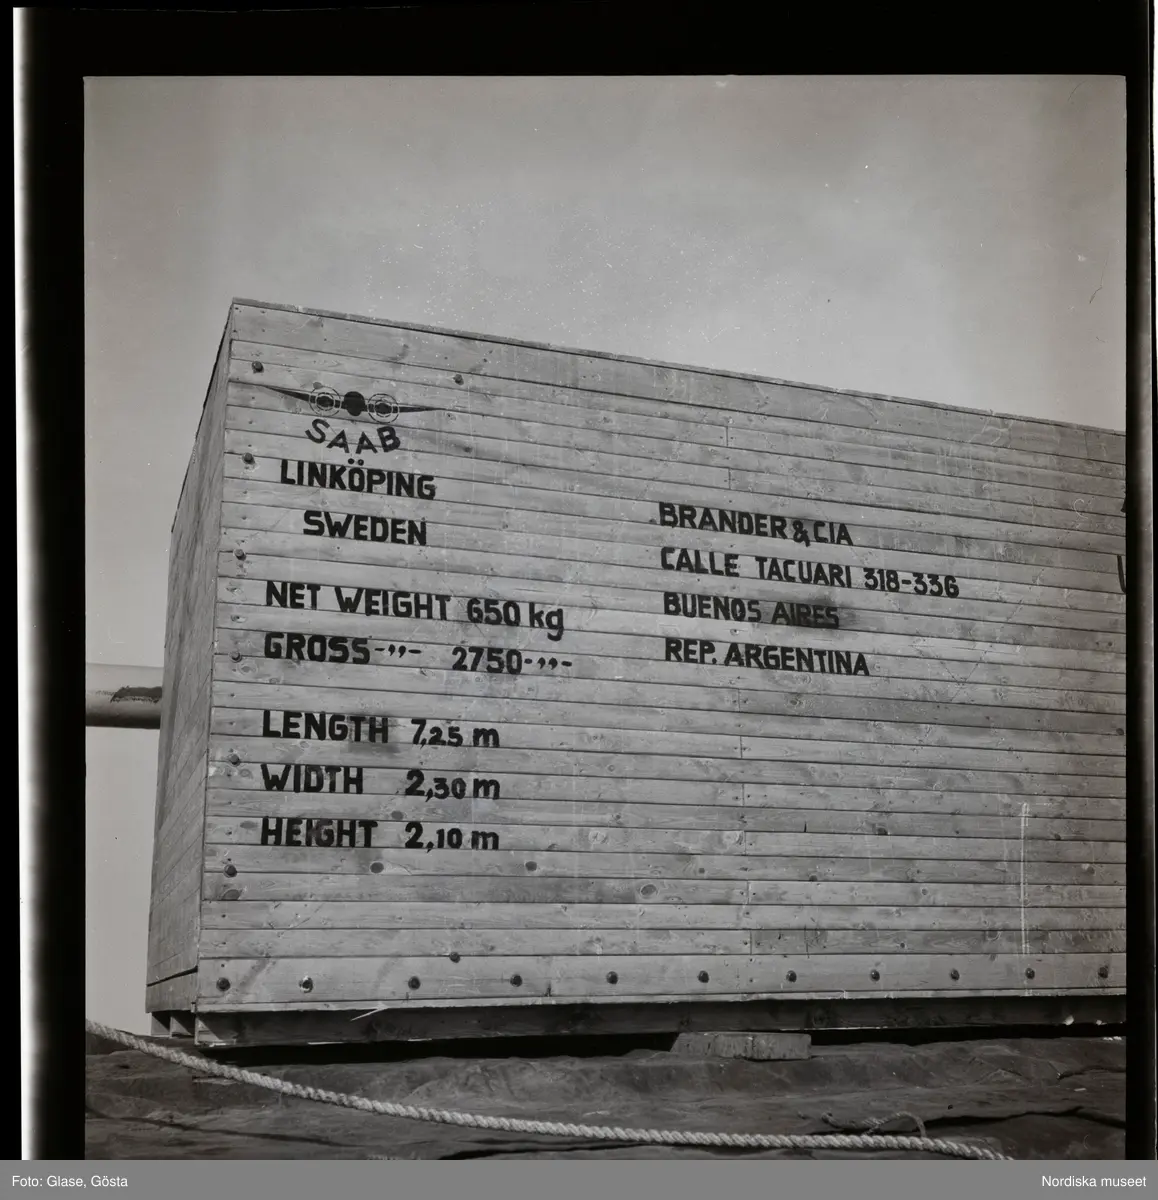 SAAB
LINKÖPING
SWEDEN
NET WEIGHT 650 kg
GROSS -,,- 2750 -,,-
LENGTH 7,25 m
WIDTH 2,30 m
HEIGHT 2,10 m
BRANDER & CIA
CALLE TACUARI 318-336
BUENOS AIRES
REP. ARGENTINA
Foto: Glase, Gösta
Nordiska museet